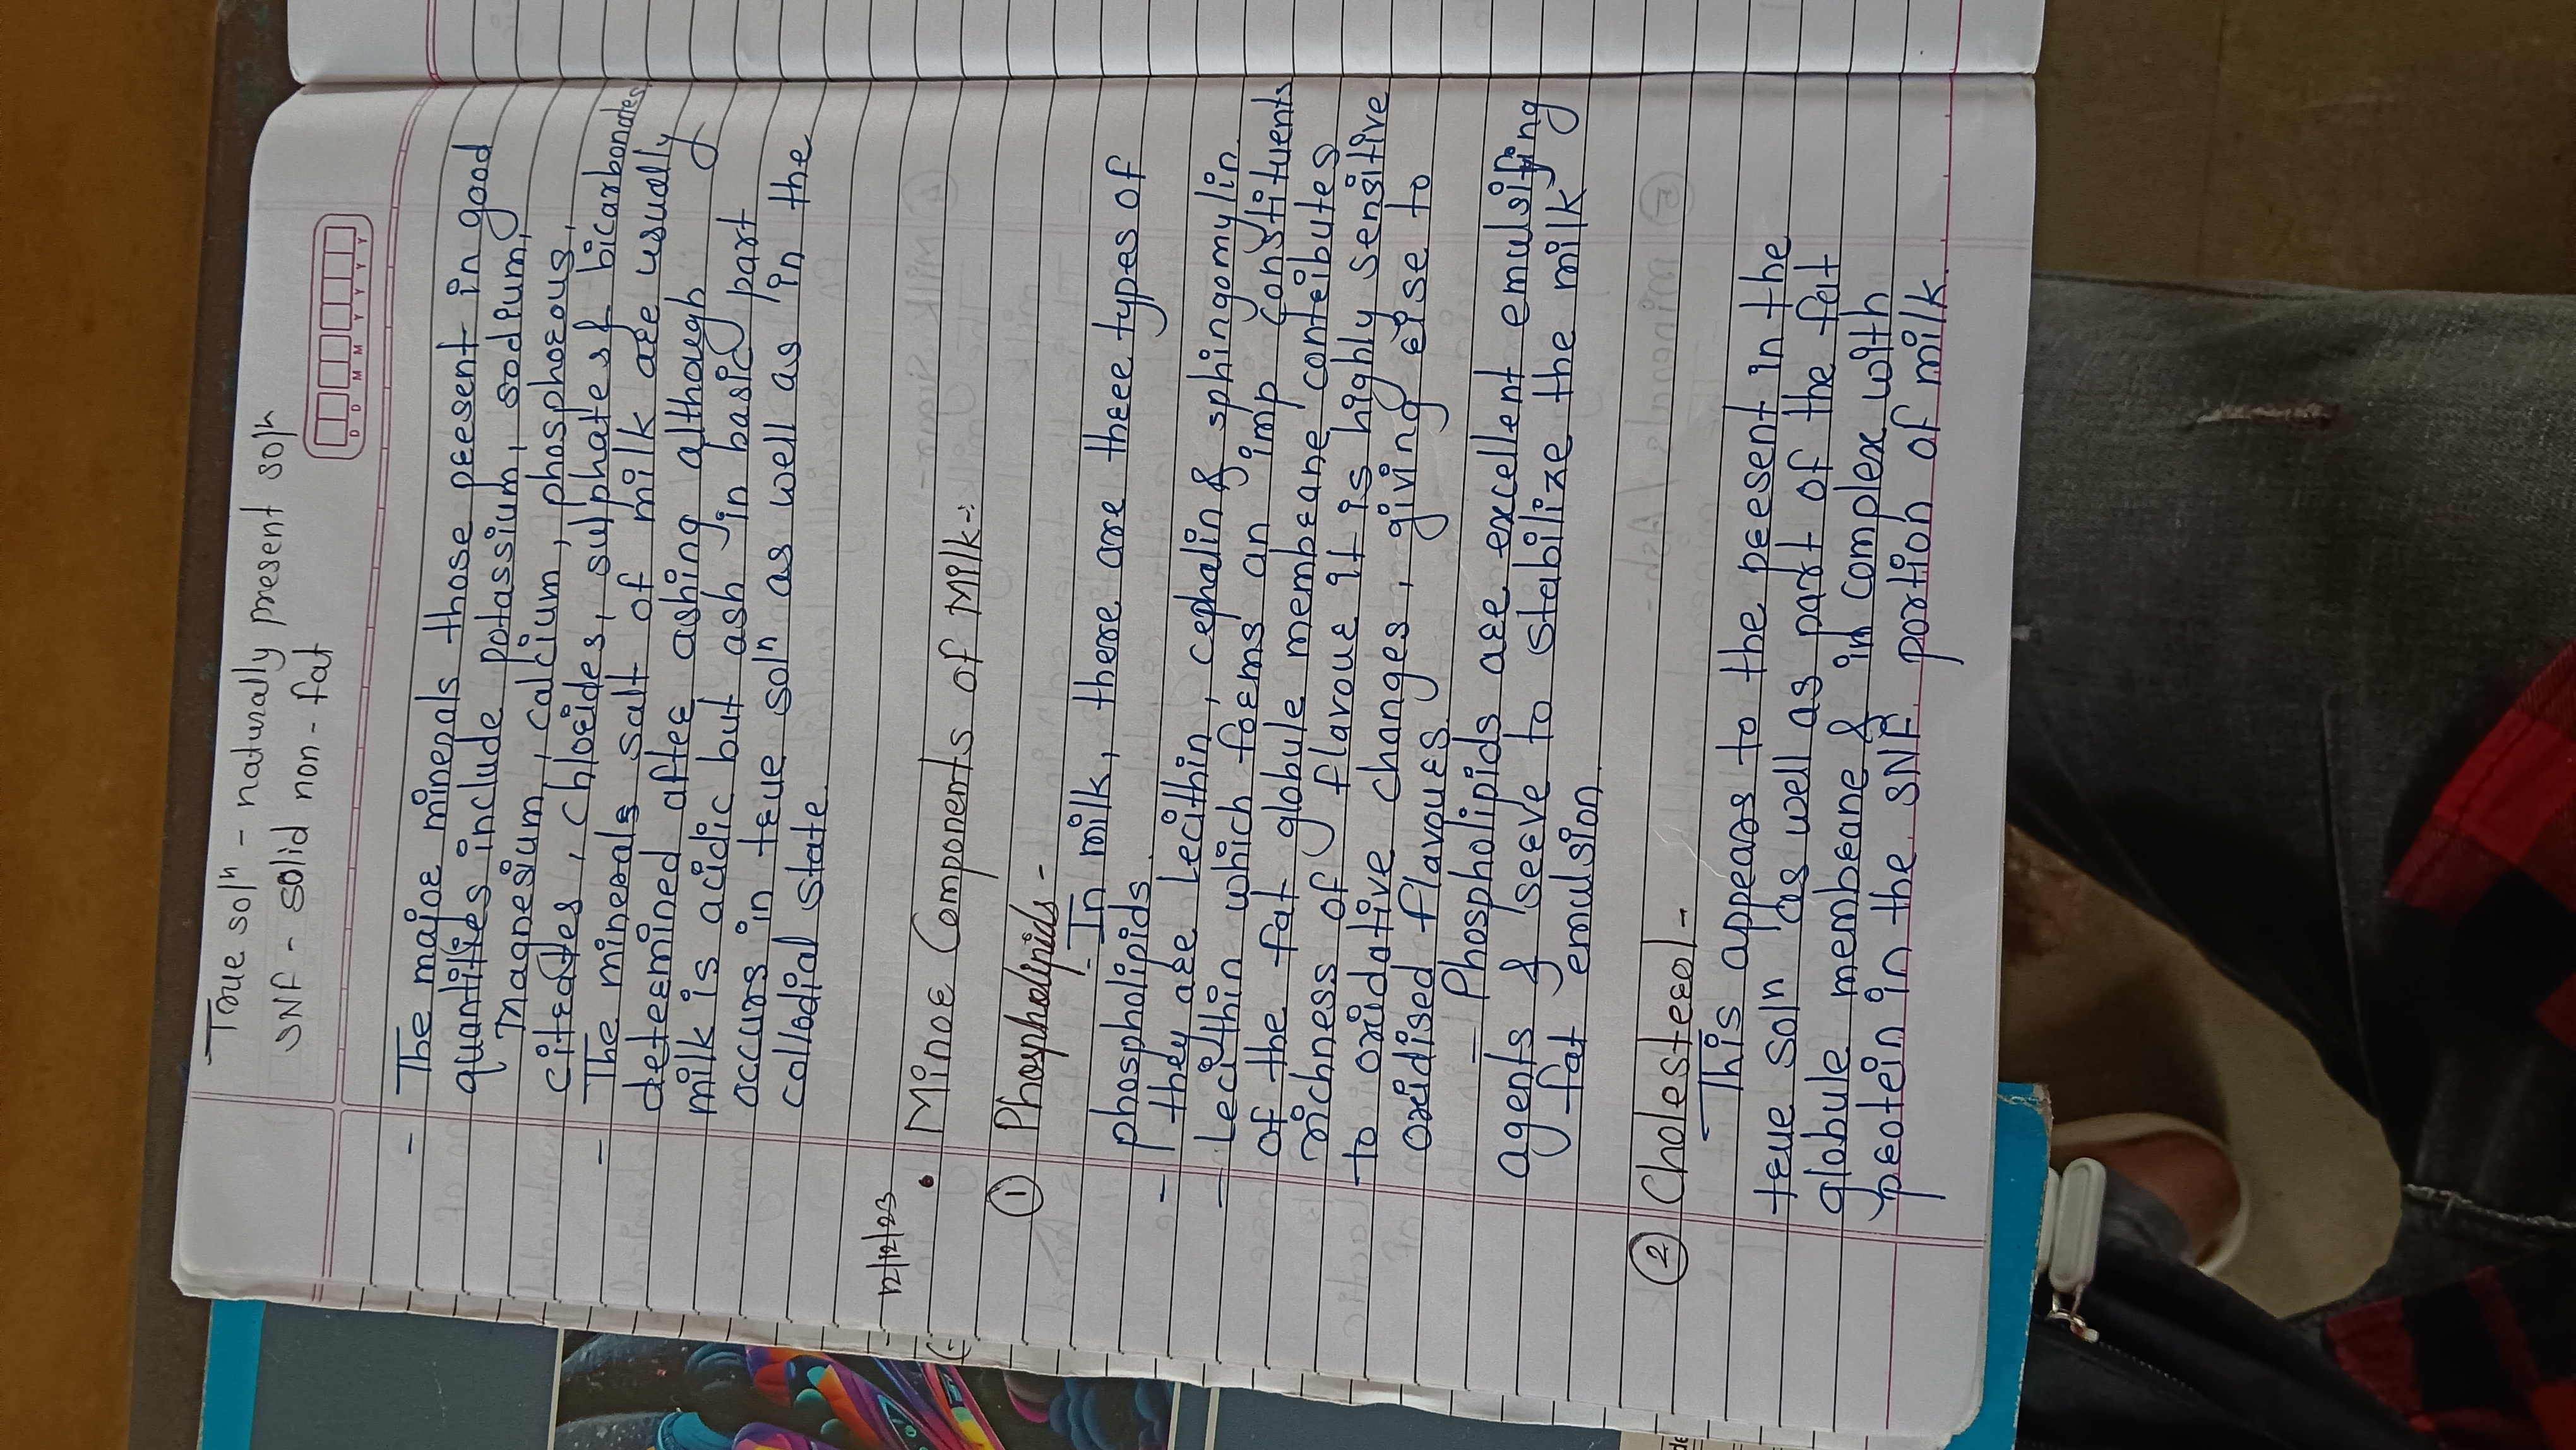 True solⁿ - naturally present solⁿ
SNF - solid non - fat
D D M M Y Y Y Y
- The major minerals those present in good
quantities include potassium, sodium,
Magnesium, calcium, phosphorous,
citrates, chlorides, sulphates & bicarbonates
- The minerals salt of milk are usually
determined after ashing although
milk is acidic but ash in basic part
occurs in true solⁿ as well as in the
collodial state.
12/12/23
• Minor Components of Milk -:
① Phospholipids -
- In milk, there are three types of
phospholipids.
- they are Lecithin, cephalin & sphingomylin.
- Lecithin which forms an imp constituents
of the fat globule membrane contributes
richness of flavour it is highly sensitive
to oxidative changes, giving rise to
oxidised flavours.
- Phospholipids are excellent emulsifing
agents & serve to stabilize the milk
fat emulsion.
② Cholesterol -
This appears to the present in the
true solⁿ as well as part of the fat
globule membrane & in complex with
protein in the SNF portion of milk.